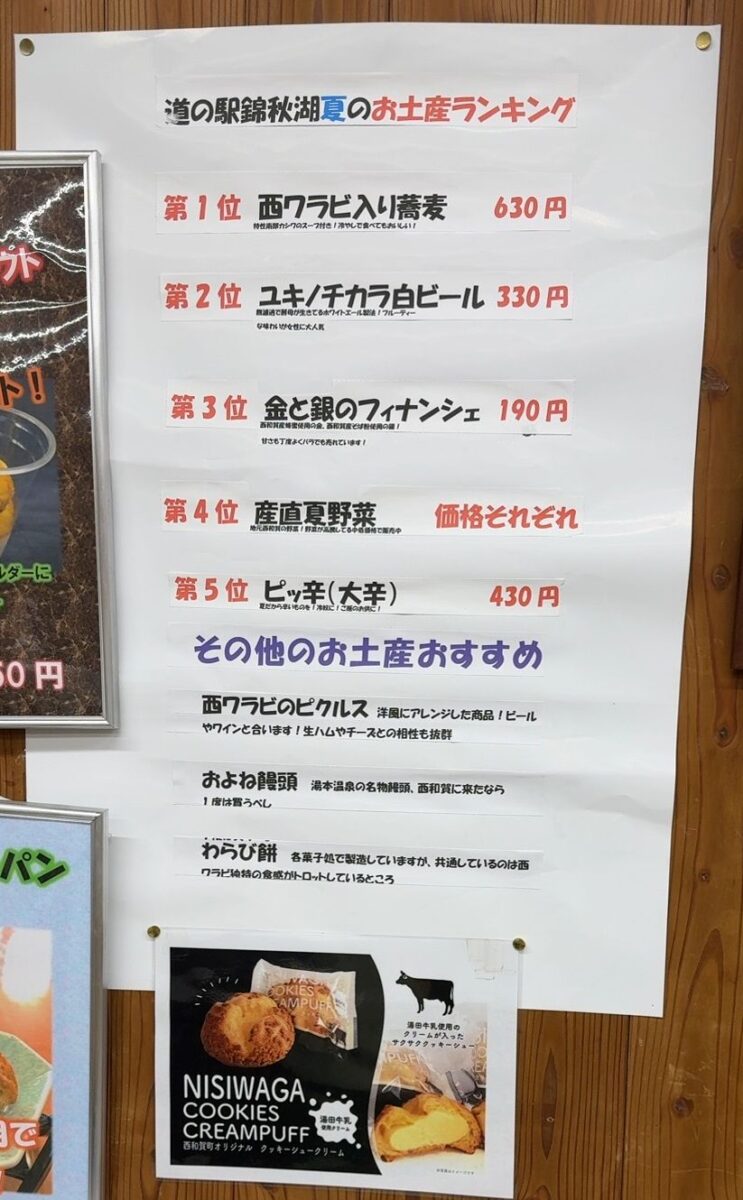 道の駅錦秋湖夏のお土産ランキング
第1位 西ワラビ入り蕎麦 630円
特性南部カシワのスープ付き!冷やして食べてもおいしい!
第2位 ユキノチカラ白ビール 330円
無濾過で酵母が生きてるホワイトエール製法!フルーティー
な味わいが女性に大人気
第3位 金と銀のフィナンシェ 190円
西和賀産蜂蜜使用の金、西和賀産そば粉使用の銀!
甘さも丁度よくバラでも売れています!
第4位 産直夏野菜 価格それぞれ
地元西和賀の野菜!野菜が高騰してる中低価格で販売中
第5位 ピッ辛(大辛) 430円
夏だから辛いものを!冷奴に!ご飯のお供に!
その他のお土産おすすめ
西ワラビのピクルス 洋風にアレンジした商品!ビール
やワインと合います!生ハムやチーズとの相性も抜群
およね饅頭 湯本温泉の名物饅頭、西和賀に来たなら
1度は買うべし
わらび餅 各菓子処で製造していますが、共通しているのは西
ワラビ独特の食感がトロットしているところ
ウト
ト!
ルダーに
50円
パン
用で
COOKIES
CREAMPUFF
湯田牛乳使用の
クリームが入った
サクサククッキーシュー
NISIWAGA
COOKIES
CREAMPUFF
湯田牛乳
使用クリーム
西和賀町オリジナル クッキーシュークリーム
※写真はイメージです